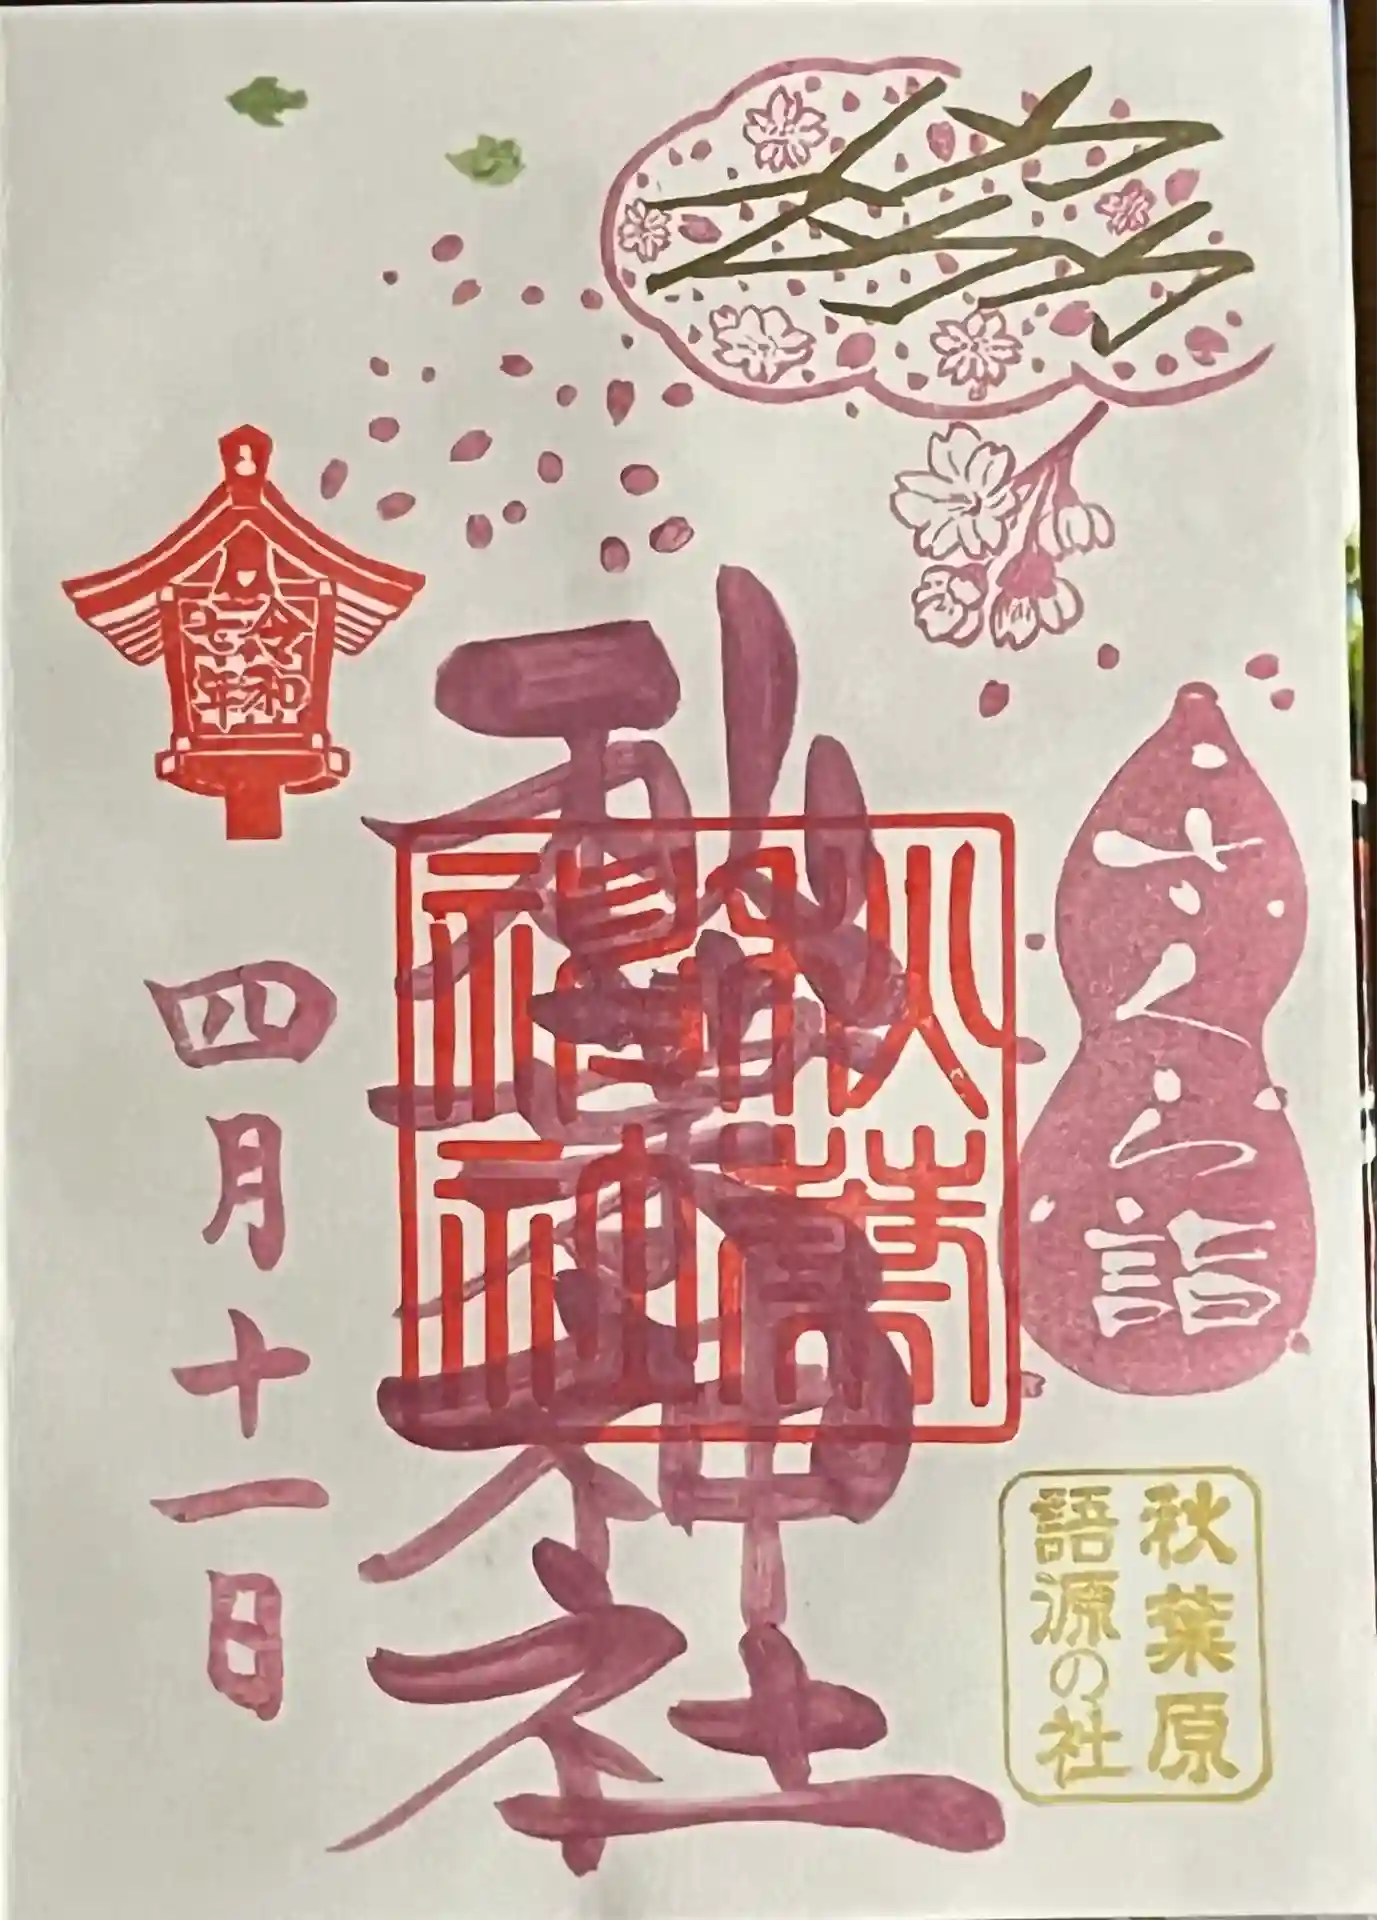 さくら詣
秋葉原
語源の社
秋葉神社
令和
七年
四月十一日